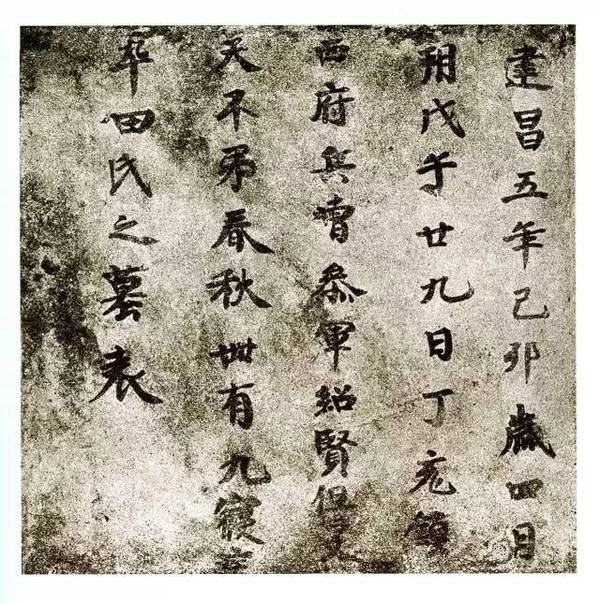 建昌五年己卯歲四月
朔戊午廿九日丁亥鎮
西府兵曹參軍紹賢但旻
天不弔春秋卌有九寢
卒田氏之墓表